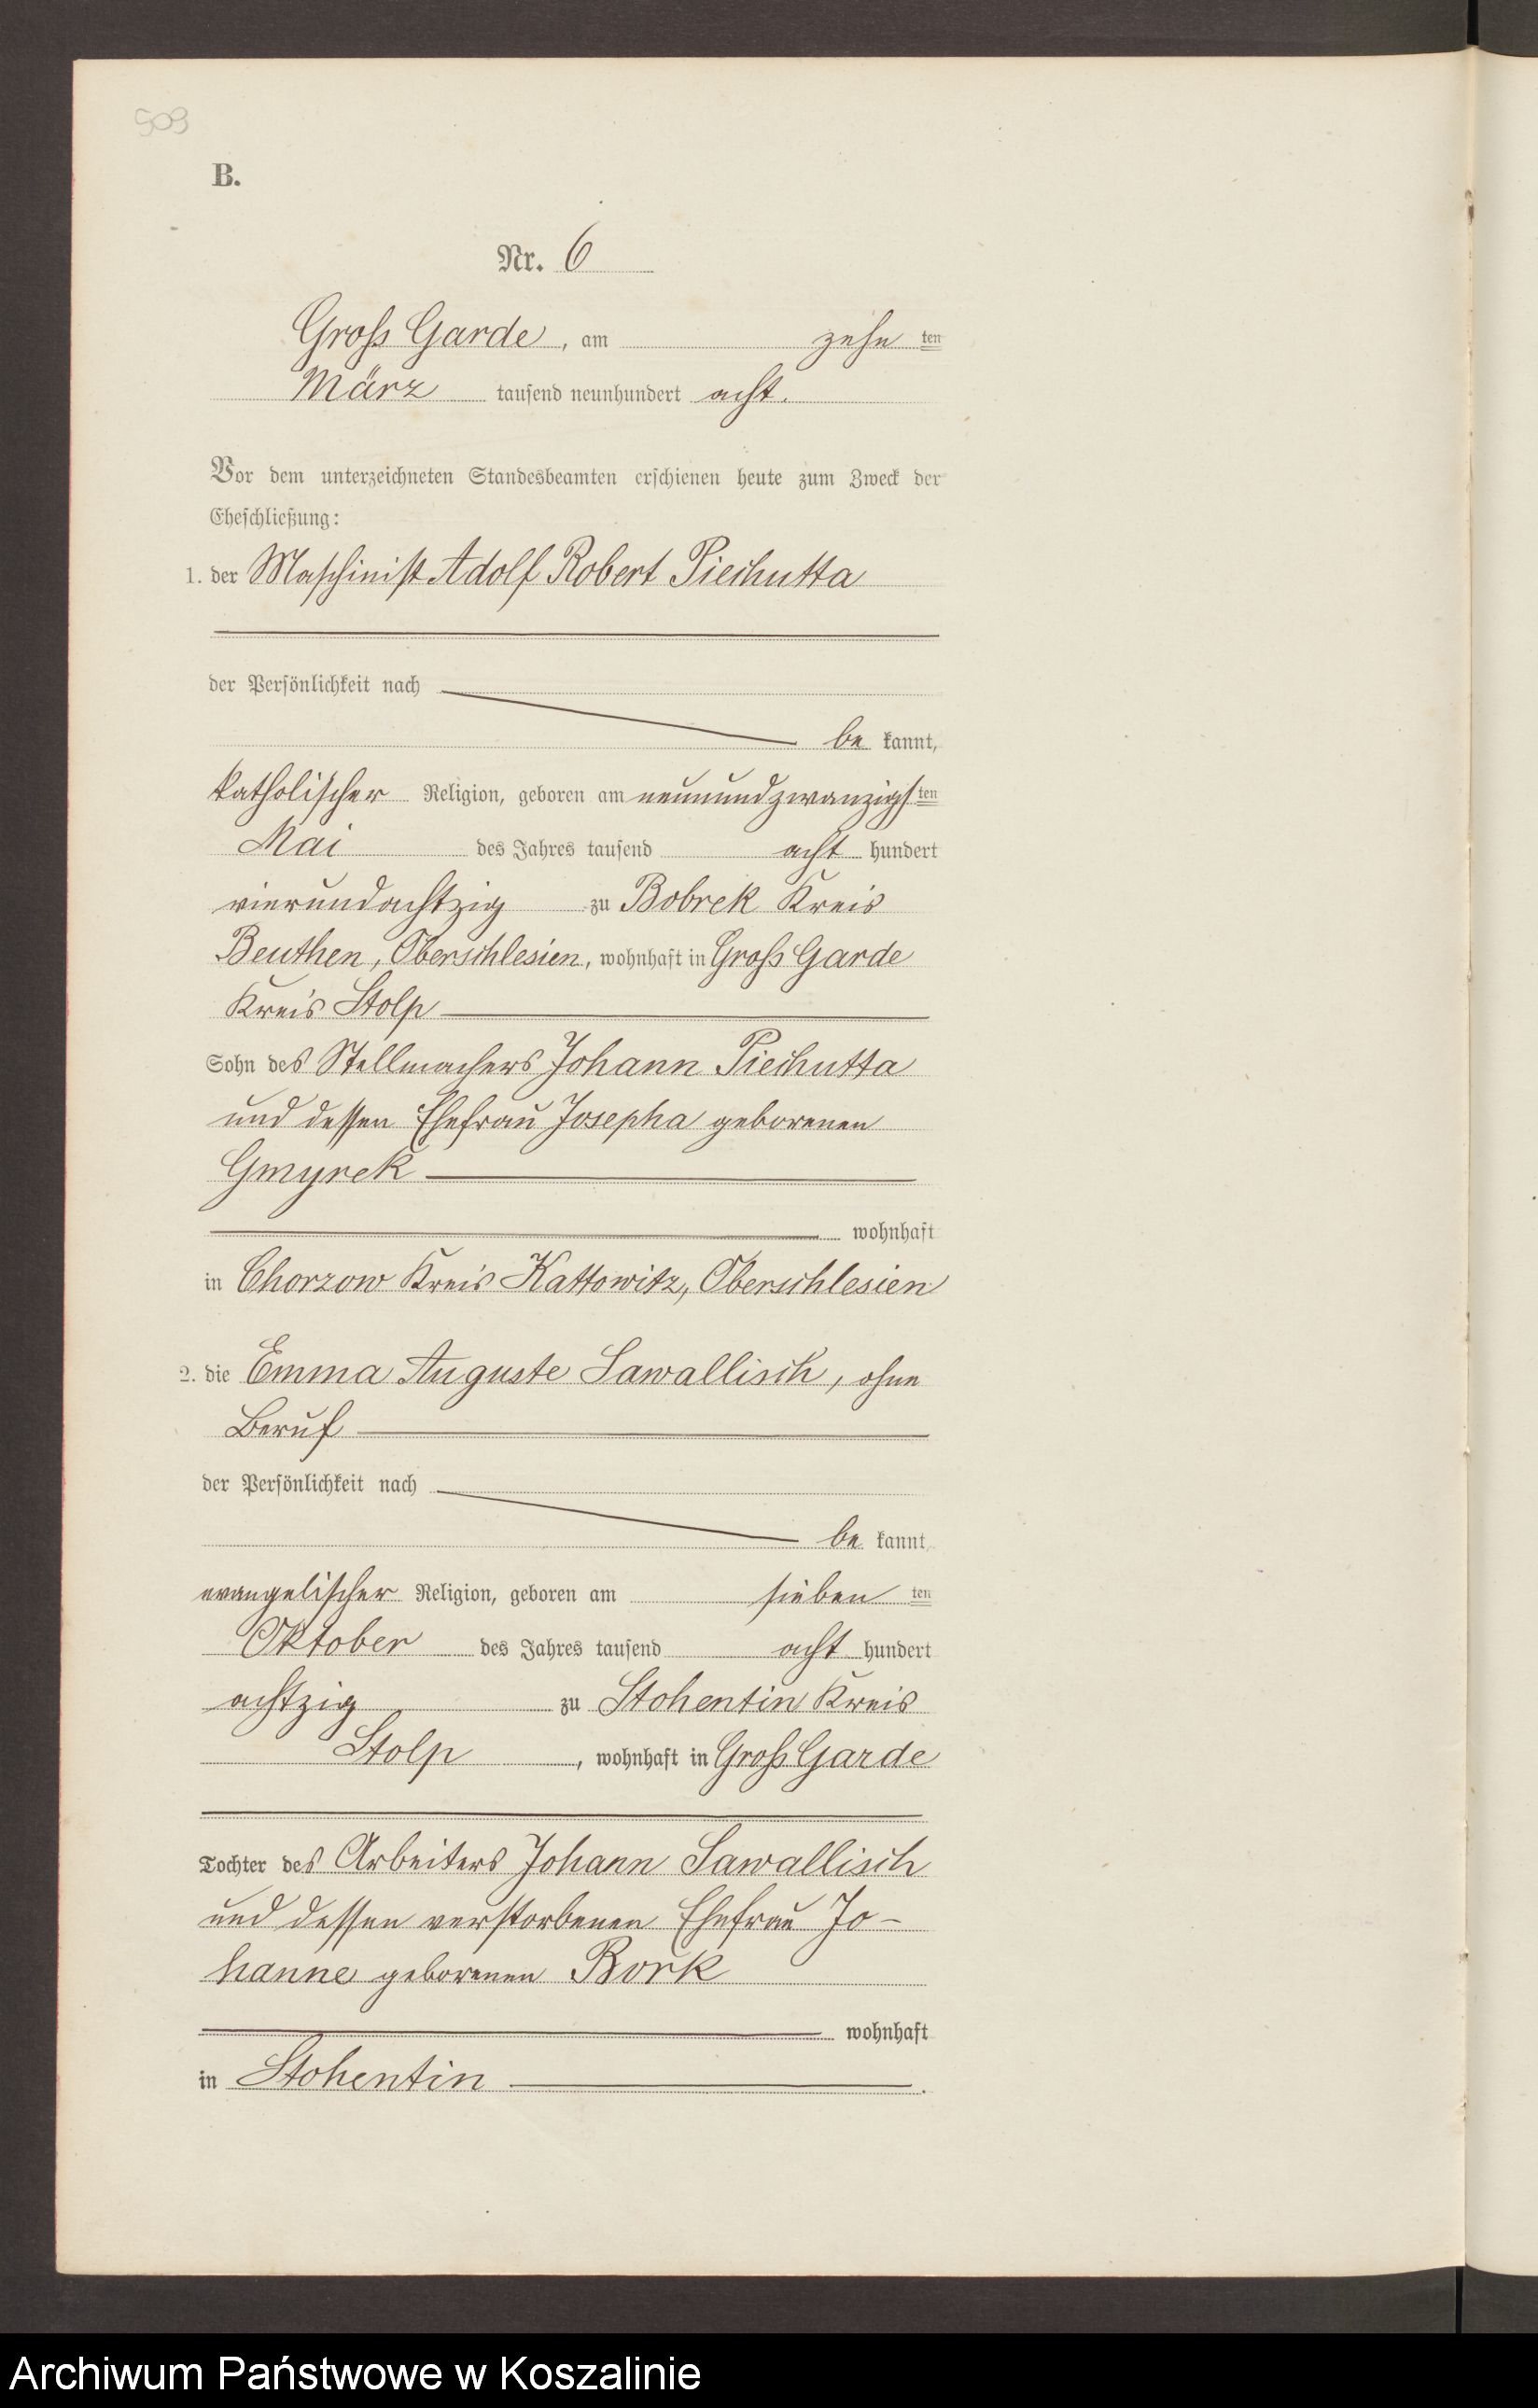 509
B.
Nr. 6
Gross Garde, am zehn ten
März tausend neunhundert acht.
Vor dem unterzeichneten Standesbeamten erschienen heute zum Zweck der
Eheschließung:
1. der Maschinist Adolf Robert Piechutta
der Persönlichkeit nach
be kannt,
katholischer Religion, geboren am neunundzwanzigs ten
Mai des Jahres tausend acht hundert
vierundachtzig zu Bobrek Kreis
Beuthen, Oberschlesien, wohnhaft in Gross Garde
Kreis Stolp
Sohn des Stellmachers Johann Piechutta
und dessen Ehefrau Josepha geborenen
Gmyrek
wohnhaft
in Chorzow Kreis Kattowitz, Oberschlesien
2. die Emma Auguste Sawallisch, ohne
Beruf
der Persönlichkeit nach
be kannt,
evangelischer Religion, geboren am sieben ten
Oktober des Jahres tausend acht hundert
achtzig zu Stohentin Kreis
Stolp, wohnhaft in Gross Garde
Tochter des Arbeiters Johann Sawallisch
und dessen verstorbenen Ehefrau Jo-
hanne geborenen Bork
wohnhaft
in Stohentin.
Archiwum Państwowe w Koszalinie